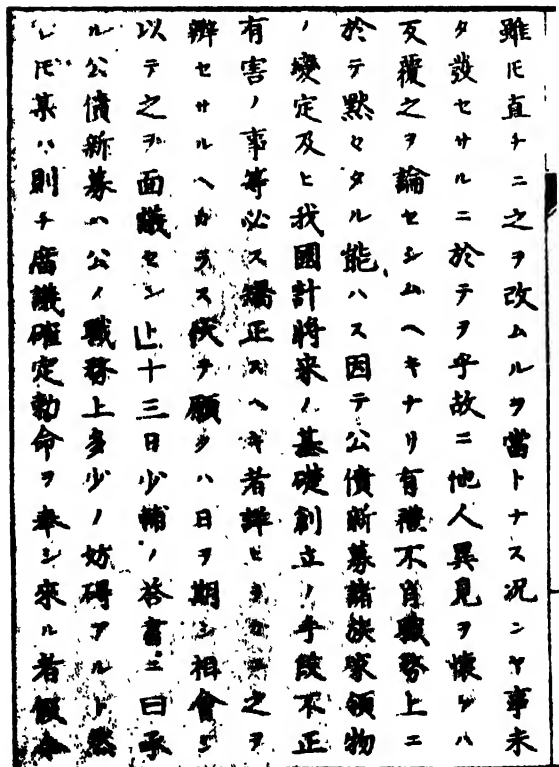 雖𪜈直チニ之ヲ改ムルヲ當トナス况ンヤ事未
タ發セサルニ於テヲヤ故ニ他人異見ヲ懷ケハ
反覆之ヲ論セシムヘキナリ有禮不肖職務上ニ
於テ黙セタル能ハス因テ公債新募諸族家領物
ノ變定及ヒ我國計將來ノ基礎創立ノ手段不正
有害ノ事等必ス矯正スヘキ者詳ヒ之ヲ
辨セサルヘカラス伏テ願クハ日ヲ期シ相會シ
以テ之ヲ面議セント」十三日少輔ノ答書ニ曰承
ル公債新募ハ公ノ職務上多少ノ妨碍アルト然
レ𪜈某ハ則チ廟議確定勅命ヲ奉シ來ル者假令